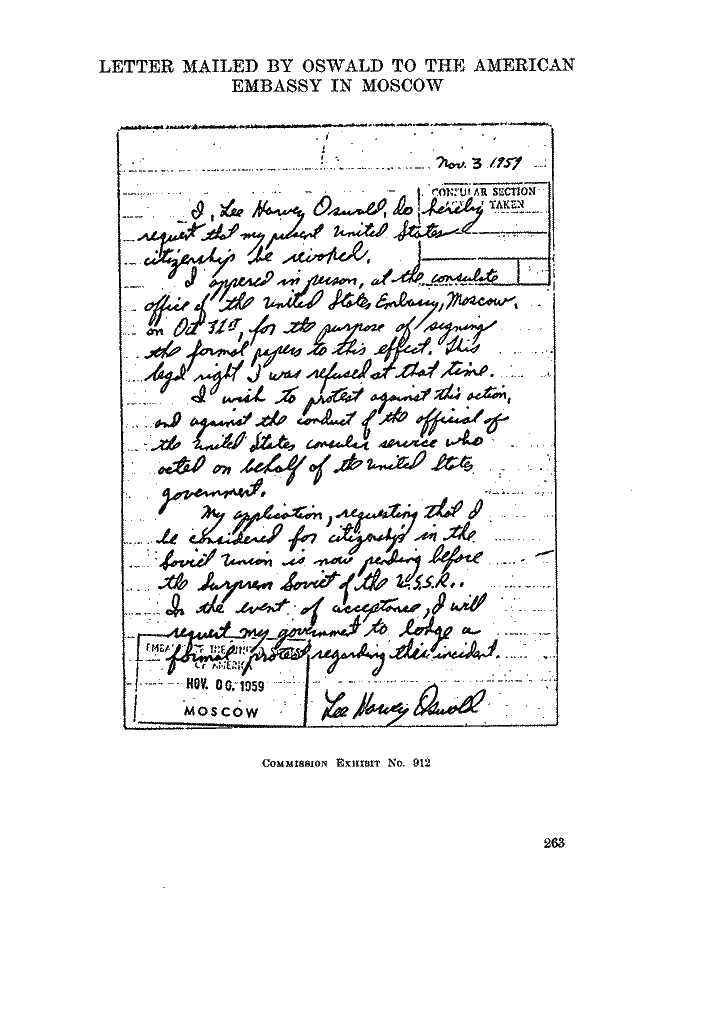 LETTER MAILED BY OSWALD TO THE AMERICAN
EMBASSY IN MOSCOW
Nov. 3 1959
CONSULAR SECTION
TAKEN
I, Lee Harvey Oswald, do hereby
request that my present United States
citizenship be revoked.
I appered in person, at the consulate
office of the United States Embassy, Moscow,
on Oct 31st, for the purpose of signing
the formal papers to this effect. This
legal right I was refused at that time.
I wish to protest against this action,
and against the conduct of the official of
the United States consular service who
acted on behalf of the United States
government.
My application, requesting that I
be considered for citizenship in the
Soviet Union is now pending before
the Surprem Soviet of the U.S.S.R..
In the event of acceptance, I will
request my government to lodge a
formal protest regarding this incident.
OF AMERICA
NOV. 06. 1959
MOSCOW
Lee Harvey Oswald
COMMISSION EXHIBIT NO. 912
263